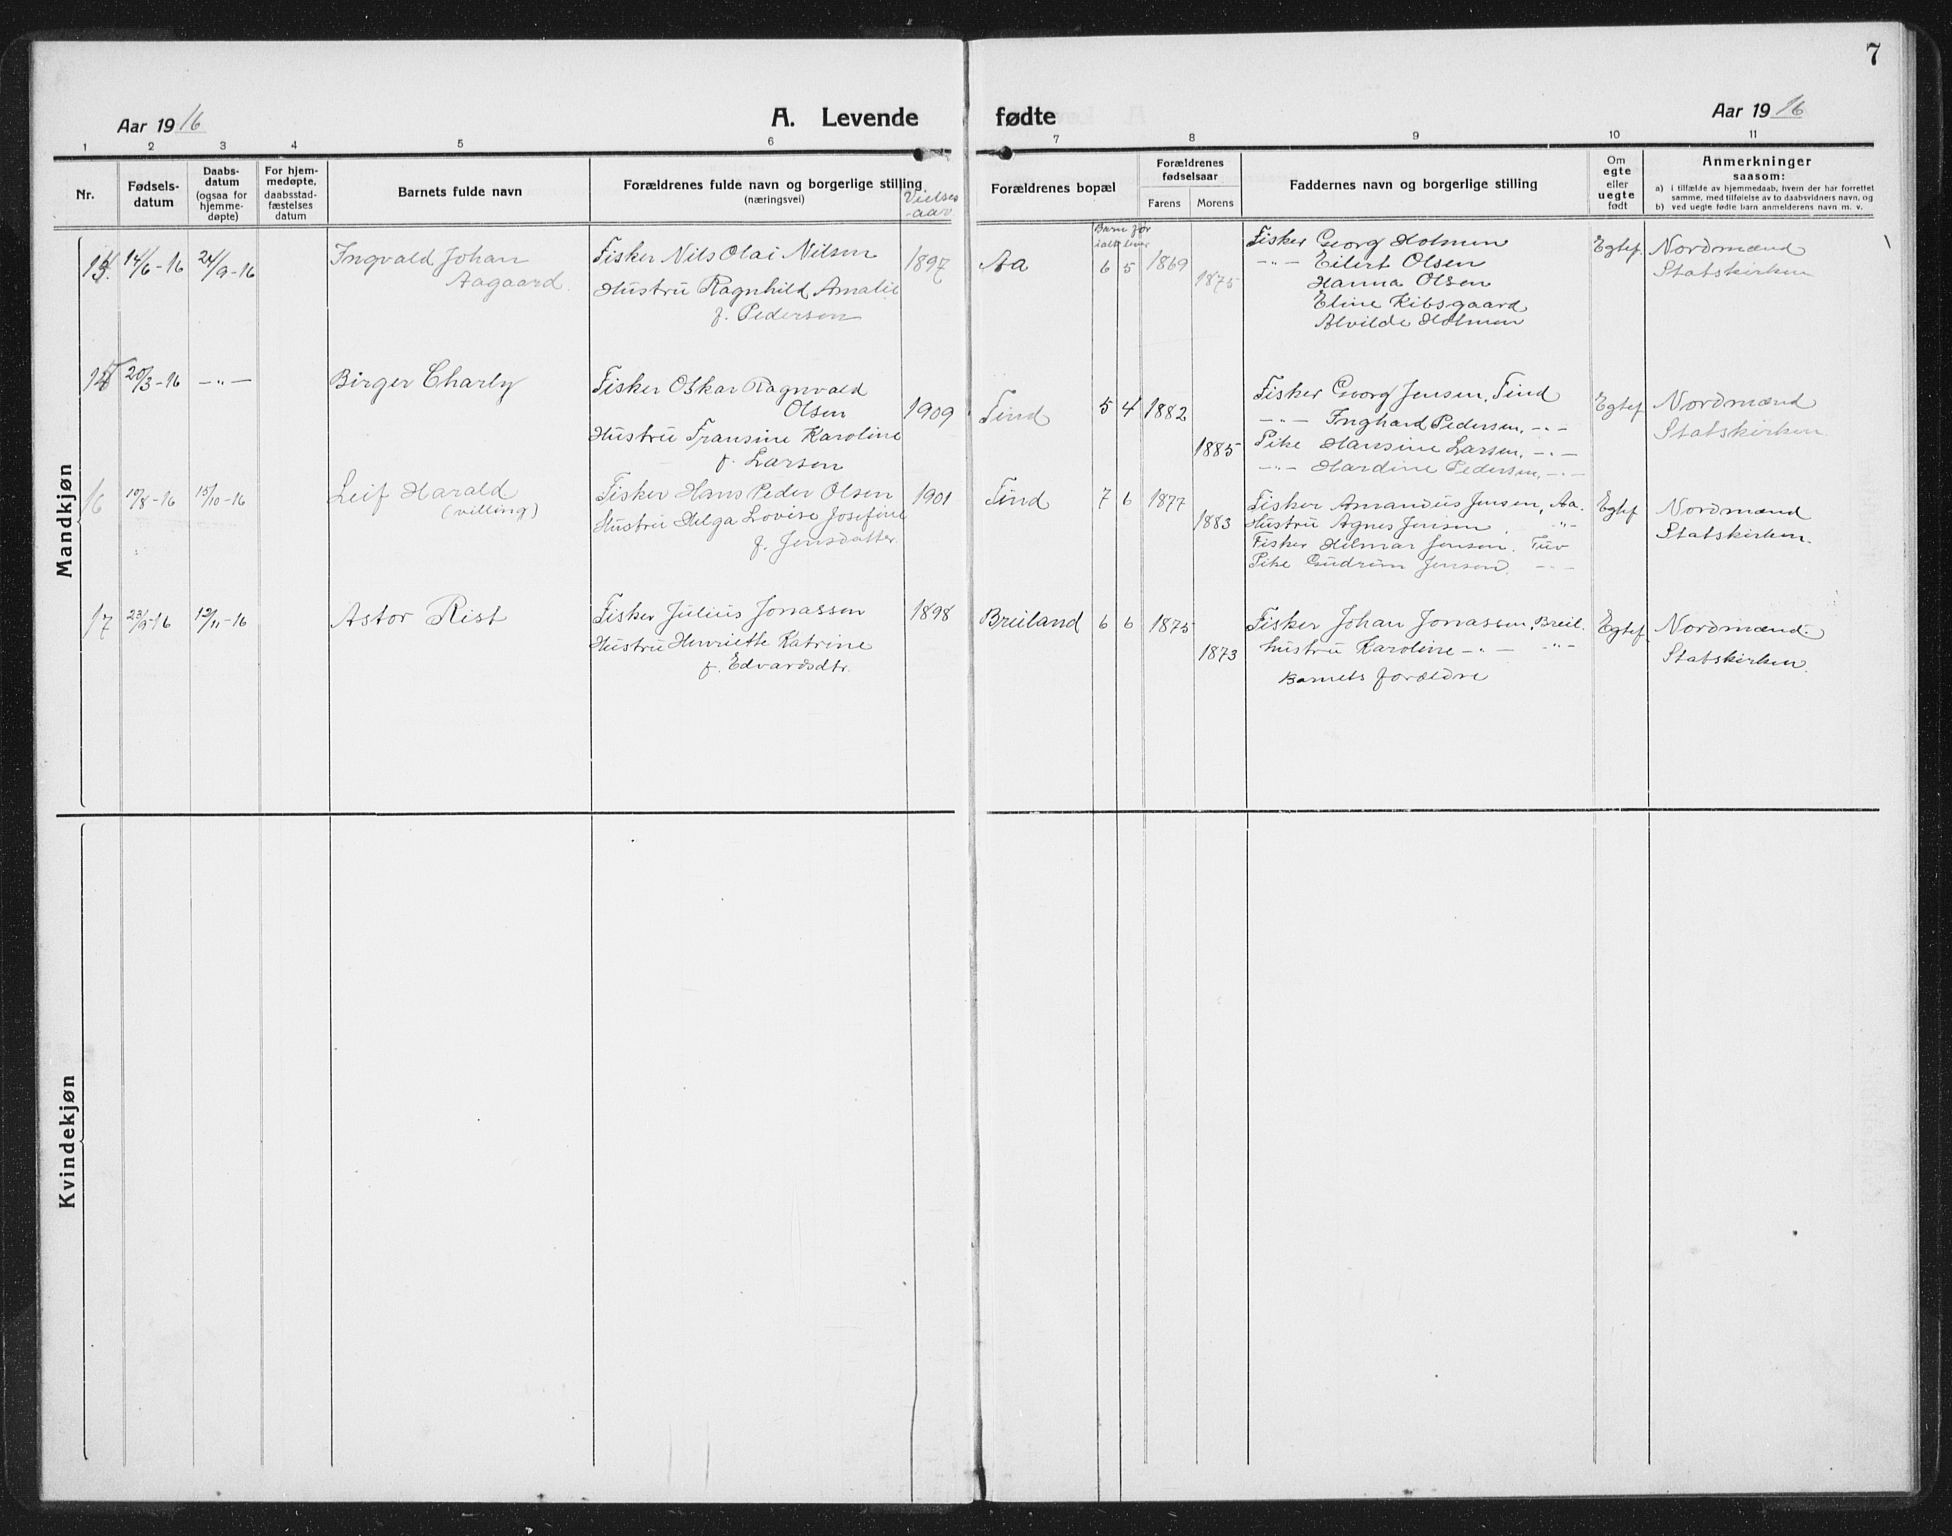 7
Aar 1916
A. Levende fødte
Aar 1916
1 2 3 4 5 6 7 8 9 10 11
Nr.
Fødsels-
datum
Daabs-
datum
(ogsaa for
hjemme-
døpte)
For hjem-
medøpte,
daabsstad-
fæstelses
datum
Barnets fulde navn
Forældrenes fulde navn og borgerlige stilling
(næringsvei)
Vielses
-aar
Forældrenes bopæl
Barn før
ialt lever
Forældrenes
fødselsaar
Farens Morens
Faddernes navn og borgerlige stilling
Om
egte
eller
uegte
født
Anmerkninger
saasom:
a) i tilfælde av hjemmedaab, hvem der har forrettet
samme, med tilføielse av to daabsvidners navn, og
b) ved uegte fødte barn anmelderens navn m. v.
Mandkjøn
14/6-16 24/9-16
Ingvald Johan
Aagaard.
Fisker Nils Olai Nilsen
Hustru Ragnhild Amalie
f. Pedersen
1897
Aa
6 5 1869
1875
Fisker Georg Holmen
-"- Eilert Olsen
Hanna Olsen
Eline Kibsgaard
Alvilde Holmen
Egtef.
Nordmænd
Statskirken
20/3-16 -"-
Birger Charly
Fisker Oskar Ragnvald
Olsen
Hustru Fransine Karoline
f. Larsen
1909
Tind
5 4 1882
1885
Fisker Georg Jensen, Tind
-"- Inghard Pedersen, -"-
Pike Hansine Larsen, -"-
-"- Hardine Pedersen, -"-
Egtef
Nordmænd
Statskirken.
16 10/8-16 15/10-16
Leif Harald
(villing)
Fisker Hans Peder Olsen
Hustru Helga Lovise Josefine
f. Jensdatter.
1901
Tind
7 6 1877
1883
Fisker Amandus Jensen, Aa.
Hustru Agnes Jensen -"-
Fisker Hilmar Jensen. Tuv
Pike Gudrun Jensen. -"-
Egtef
Nordmænd
Statskirken.
17 23/9-16 12/11-16
Astor Rist
Fisker Julius Jonassen
Hustru Henriette Katrine
f. Edvardsdtr.
1898
Breiland
6 6 1875
1873
Fisker Johan Jonassen, Breil.
Hustru Karoline -"- -"-
Barnets forældre
Egtef
Nordmænd.
Statskirken.
Kvindekjøn